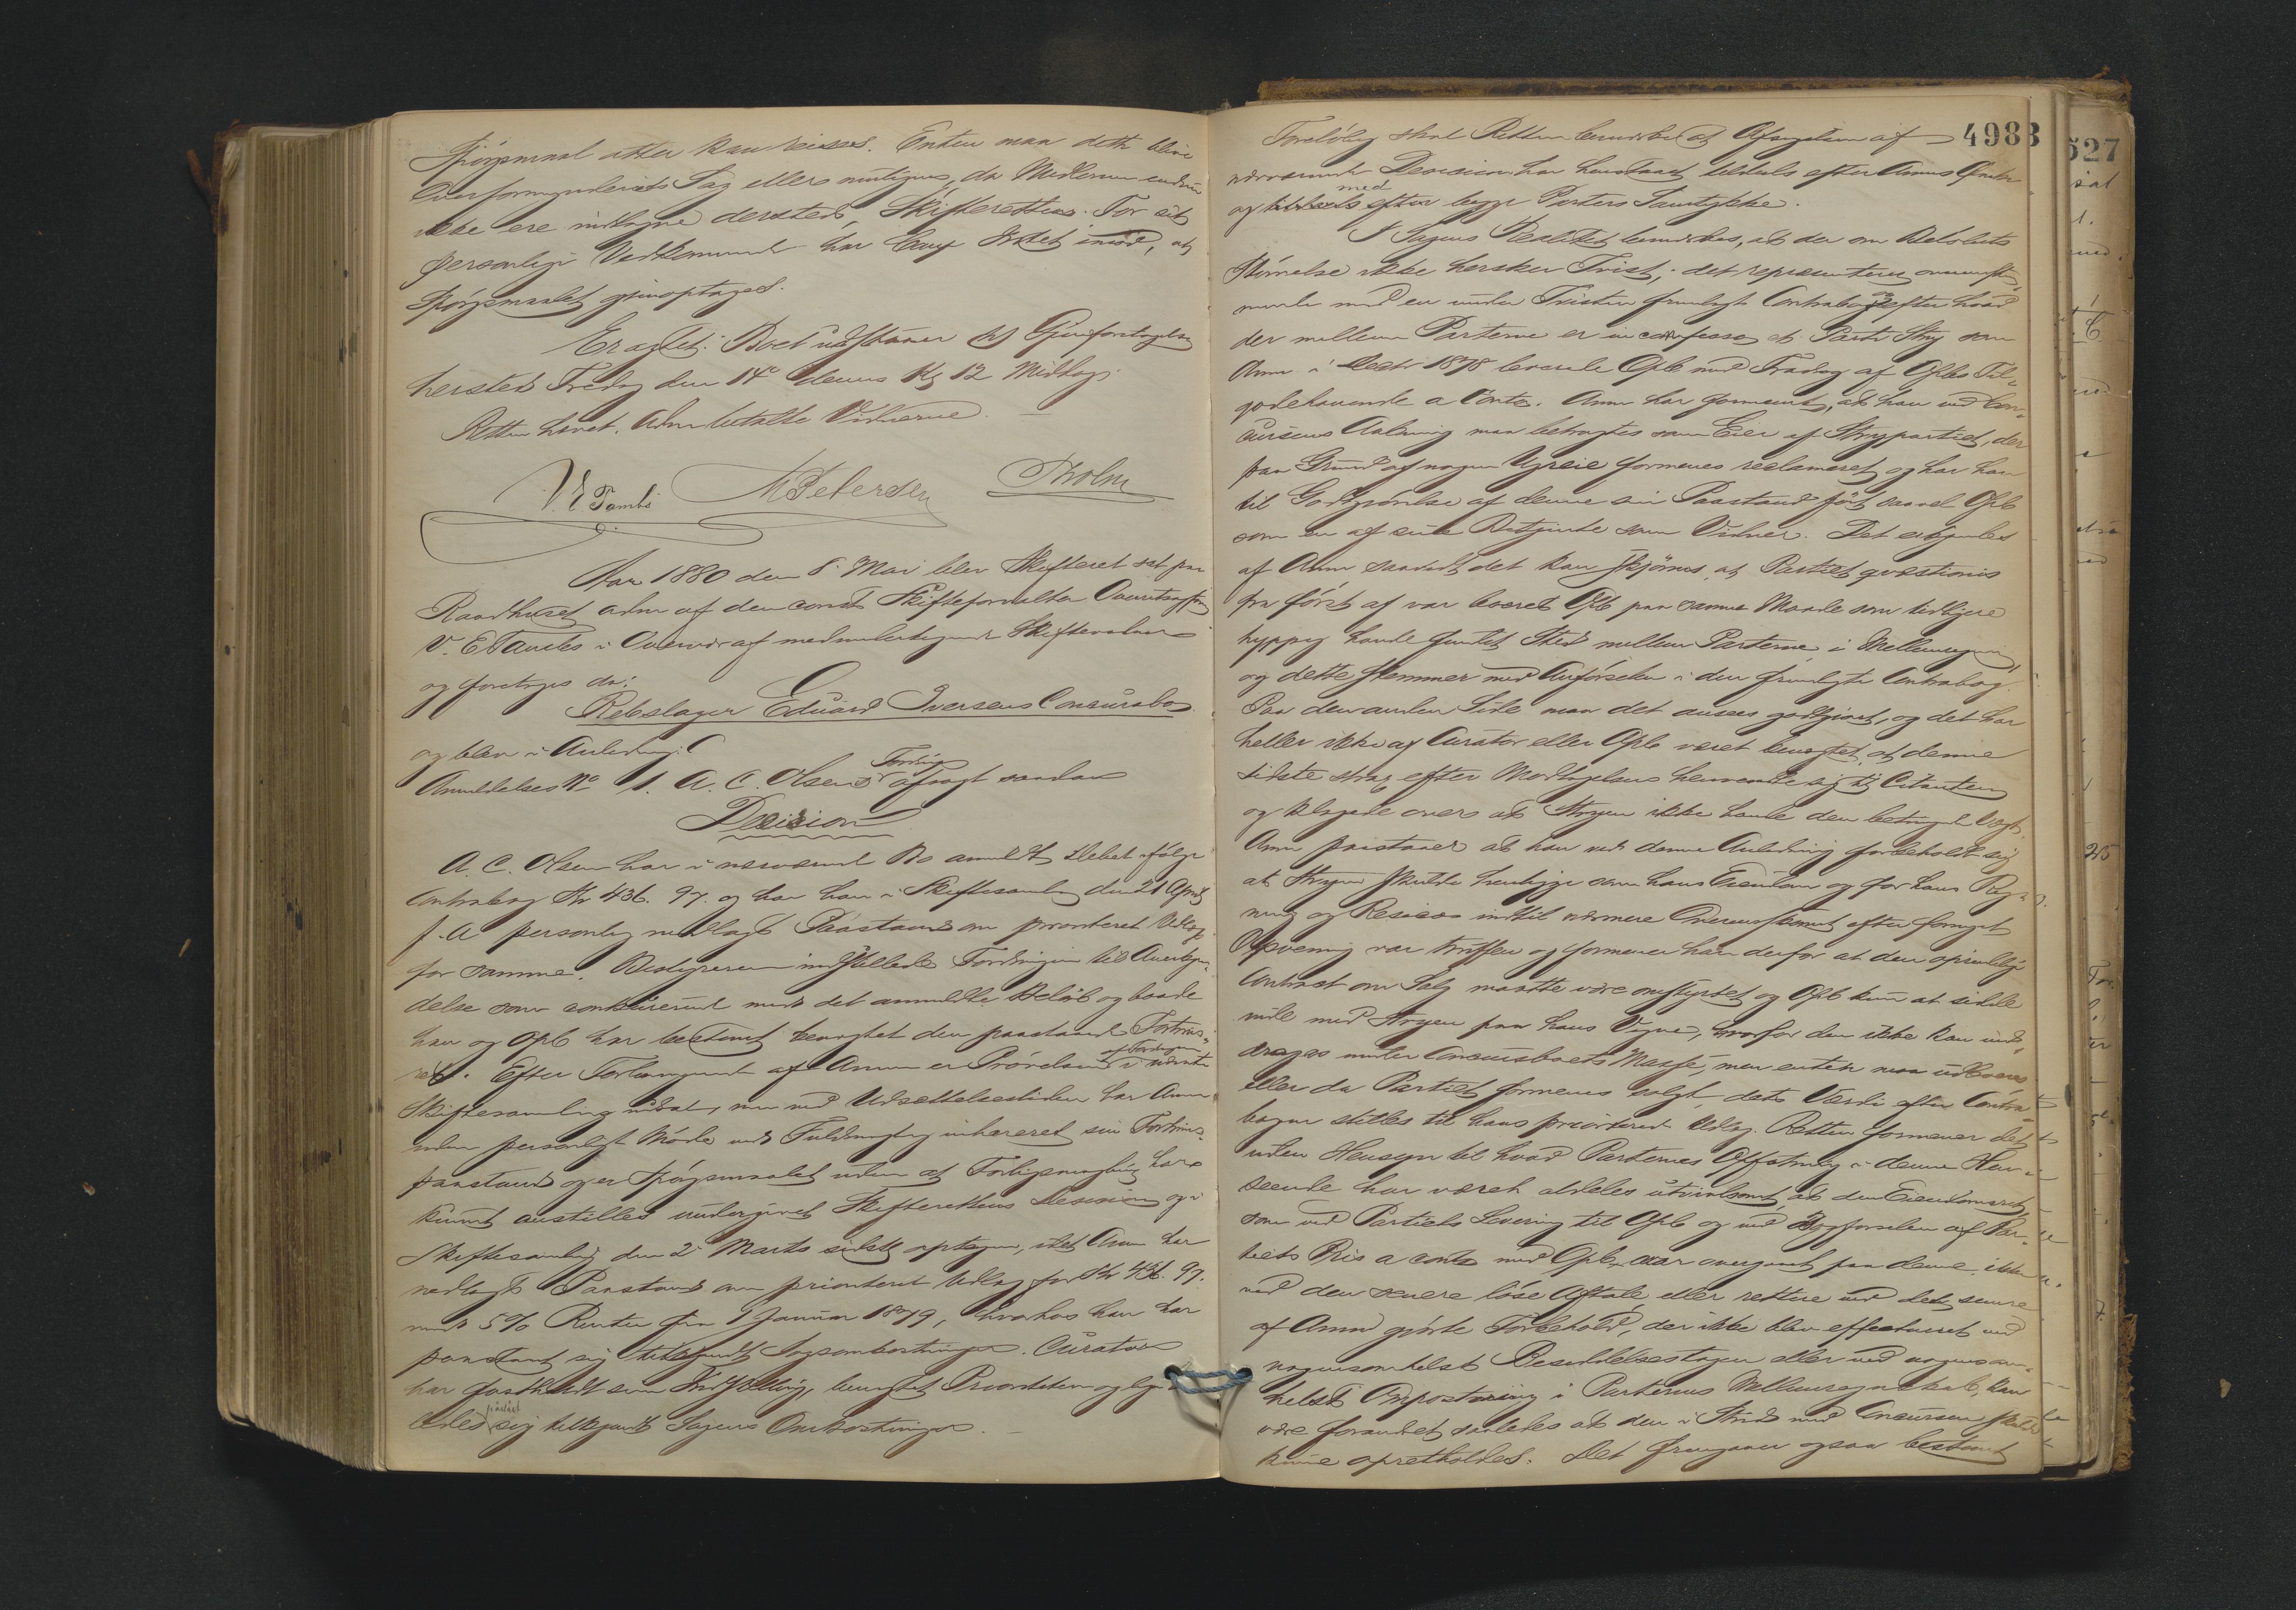 Spørgsmaal atter kan reises. Enten maa dette blive
Overformynderiets Sag eller muligens, da Midlerne endnu
ikke ere indkomne dersteds, Skifterettens. For sit
personlige Vedkommende har Comp Intet imod, at
Spørgsmaalet gjenoptages.
Eragtet: Boet udstaaer til Gjenforetagelse
hersteds Fredag den 14de dennes Kl 12 Middag.
Retten hævet. Adm betalte Vidnerne.
V. E Tambs M Petersen Tholm
Aar 1880 den 8 Mai blev Skifteret sat paa
Raadhuset adm af den const Skifteforvalter
V. E Tambs i Overvær af medundertegnede Skiftevidner
og foretoges da:
Rebslager Eduard Iversens Concursbo
og blev i Anledning
Anmeldelses No 1. A. C. Olsens Fordring afsagt saadan
Decision
A. C. Olsen har i nærværende Bo anmeldt Debet ifølge
Contrabog Kr 436. 97. og har han i Skiftesamling den 21 April
f. A personlig nedlagt Paastand om prioriteret Udlæg
for samme. Bestyreren indstillede Fordringen til Anerkjen-
delse som concurrerende med det anmeldte Beløb og baade
han og Opb har bestemt benægtet den paastaaede Fortrins-
ret. Efter Forlangende af Anm er Prøvelsen af Fordringen i nævnte
Skiftesamling udsat, men ved Udsættelsestiden har Anm
uden personligt Møde ved Fuldmægtig inhæreret sin Fortrins-
paastand og er Spørgsmaalet uden at Forligsmægling har
kunnet anstilles undergivet Skifterettens Decision og i
Skiftesamling den 2 Marts sidst optagen, idet Anm har
nedlagt Paastand om prioriteret Udlæg for Kr 436. 97.
med 5% Renter fra 1 Januar 1879, hvorhos han har
paastaaet sig tilkjendt Sagsomkostninger. Curator
har fastholdt sin Indstilling, benægtet Prioriteten og lige-
ledes påstået sig tilkjendt Sagens Omkostninger.
4983
Foreløbig skal Retten bemærke at Afsigelsen af
nærværende Decision har henstaaet tildels efter Anms Ønske
og tildels med efter begge Parters Samtykke.
I Sagens Realitet bemærkes, at der om Beløbets
Størrelse ikke hersker Tvist; det repræsenterer overensstem-
mende med en under Tvisten fremlagt Contrabog og efter hvad
der mellem Parterne er in confesso et Parti Stry som
Anm i Decbr 1878 leverede Opb med Fradrag af Opbs Til-
godehavende a Conto. Anm har formeent, at han ved Con-
cursens Aabning maa betragtes som Eier af Strypartiet, der
paa Grund af nogen Ureie formenes reclameret og har han
til Godtgjørelse af denne sin Paastand ført saavel Opb
som en af sine Betjente som Vidner. Det erkjendes
af Anm saavidt det kan skjønnes, at Partiet qvæstionis
fra først af var leveret Opb paa samme Maade som tidligere
hyppig havde fundet Sted mellem Parterne i Mellemregning
og dette stemmer med Anførselen i den fremlagte Contrabog.
Paa den anden Side maa det ansees godtgjort, og det har
heller ikke af Curator eller Opb været benægtet, at denne
sidste strax efter Modtagelsen henvendte sig til Citanten
og klagede over at Stryen ikke havde den betingede Vægt.
Anm paastaaer at han ved denne Anledning forbeholdt sig
at Stryen skulde henligge som hans Eiendom og for hans Reg-
ning og Resico indtil nærmere Overenskomst efter fornyet
Opveining var truffen og formener han derfor at den oprindelige
Contract om Salg maatte være omstyrtet og Opb kun at sidde
inde med Stryen paa hans Vegne, hvorfor den ikke kan ind-
drages under Concursboets Masse, men enten maa udleveres
eller da Partiet formenes solgt, dets Værdi efter Contra-
bogen stilles til hans prioriterede Udlæg. Retten formener det
uden Hensyn til hvad Parternes Opfatning i denne Hen-
seende har været aldeles utvivlsomt, at den Eiendomsret,
som ved Partiets Levering til Opb og ved Bogførselen af Par-
tiets Pris a conto med Opb, var overgaaet paa denne, ikke
ved den senere løse Aftale, eller rettere ved det senere
af Anm gjorte Forbehold, der ikke blev effectueret ved
nogensomhelst Besiddelsestagen eller ved nogensom-
helst Ompostering i Parternes Mellemregnskab, kan
være forandret saaledes at den i Strid med Concursen skulde
kunne opretholdes. Det fremgaaer ogsaa bestemt
527